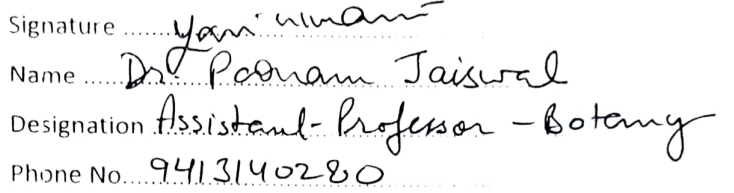 Signature
Name Dr. Poonam Jaiswal
Designation Assistant-Professor - Botany
Phone No. 9413140280